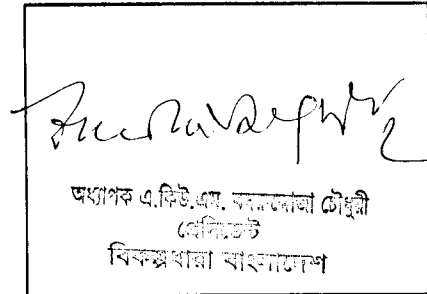 অধ্যাপক এ.কিউ.এম. বদরুদ্দোজা চৌধুরী
প্রেসিডেন্ট
বিকল্পধারা বাংলাদেশ